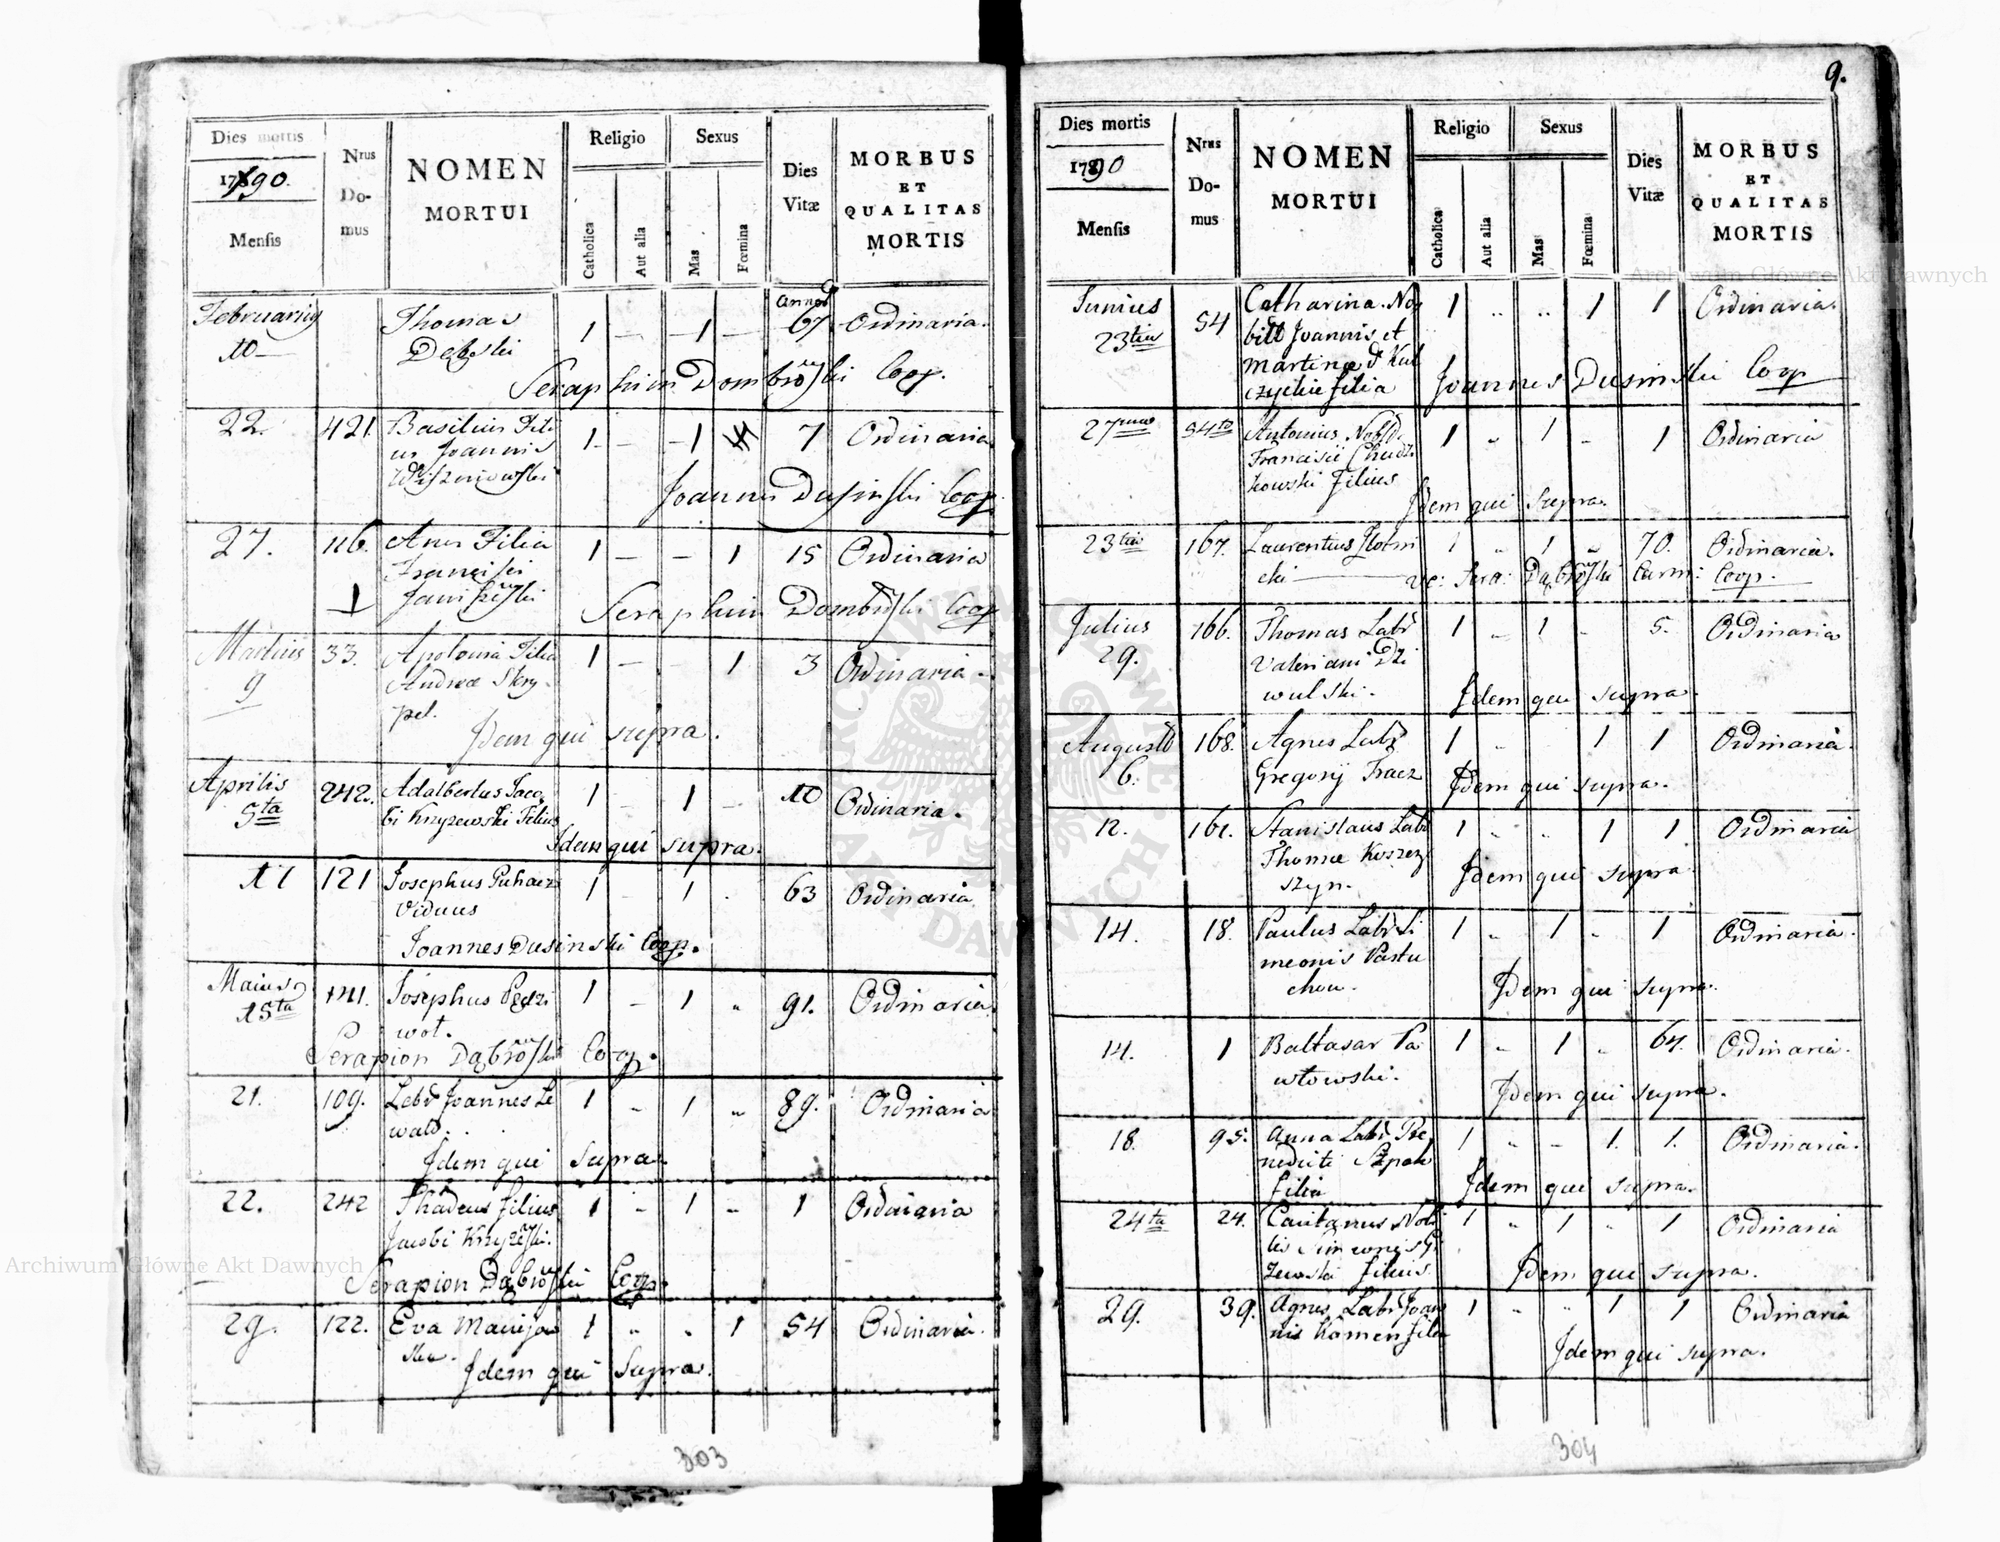 Dies mortis
1790.
Mensis
Nrus
Do-
mus
NOMEN
MORTUI
Religio
Catholica
Aut alia
Sexus
Mas
Fœmina
Dies
Vitæ
MORBUS
ET
QUALITAS
MORTIS
Februarius Thomas 1 — 1 — annos 67 Ordinaria.
10 —
Seraphim Coop.
22. 421. Basilius Fili 1 — 1 7 Ordinaria
us Joannis
Joannes Dusinski Coop.
27. 116. Anna Filia 1 — — 1 15 Ordinaria
Francisci
1
Seraphim Coop
Martius 33. Apolonia Filia 1 — — 1 3 Ordinaria
9 Andreæ Skry-
pel.
Idem qui supra.
Aprilis 242. Adalbertus Jaco 1 — 1 — 10 Ordinaria.
5ta bi Krzyzewski Filius
Idem qui supra.
11 121 Josephus Puhacz 1 — 1 . 63 Ordinaria
Viduus
Joannes Dusinski Coop.
Maius 141. Josephus Pędzi 1 — 1 " 91. Ordinaria
15ta wot.
Serapion Coop.
21. 109. Labr Joannes Le 1 — 1 " 89. Ordinaria
wald.
Idem qui supra.
22. 242 Thadeus filius 1 — 1 — 1 Ordinaria
Jacobi
Serapion Coop.
29. 122. Eva 1 " . 1 54 Ordinaria.
Idem qui supra.
303
9.
Dies mortis
1790
Mensis
Nrus
Do-
mus
NOMEN
MORTUI
Religio
Catholica
Aut alia
Sexus
Mas
Fœmina
Dies
Vitæ
MORBUS
ET
QUALITAS
MORTIS
Junius 54 Catharina No 1 .. .. 1 1 Ordinaria.
23tia Joannis et
filia
Joannes Dusinski Coop
27ma 54to Antonius 1 " 1 1 Ordinaria
Francisci Chudzi
kowski Filius
Idem qui supra.
23tia 167. Laurentius 1 " 1 " 70. Ordinaria.
cki Coop.
Julius 166. Thomas Labr 1 — 1 — 5. Ordinaria
29. Valeriani Dzi
wulski.
Idem qui supra.
Augusti 168. Agnes Labr 1 " 1 1 Ordinaria.
6. Gregorij Fracz
Idem qui supra.
12. 161. Stanislaus Labr 1 " " 1 1 Ordinaria
Thomæ Koszcz
szyn.
Idem qui supra
14. 18. Paulus Labr Si 1 " 1 " 1 Ordinaria.
meonis Pastu
chow.
Idem qui supra.
14. 1 Baltasar Pa 1 " 1 " 64. Ordinaria.
włowski.
Idem qui supra.
18. 95. Anna Labr Be 1 " — 1. 1. Ordinaria.
nedicti
filia
Idem qui supra.
24ta 24. Caietanus Nobi 1 " 1 " 1 Ordinaria
lis Simeonis
filius.
Idem qui supra.
29. 39. Agnes Labr Joan 1 " " 1 1 Ordinaria
nis Komen filia
Idem qui supra.
304
Archiwum Główne Akt Dawnych
Archiwum Główne Akt Dawnych
ARCHIWUM GŁÓWNE AKT DAWNYCH